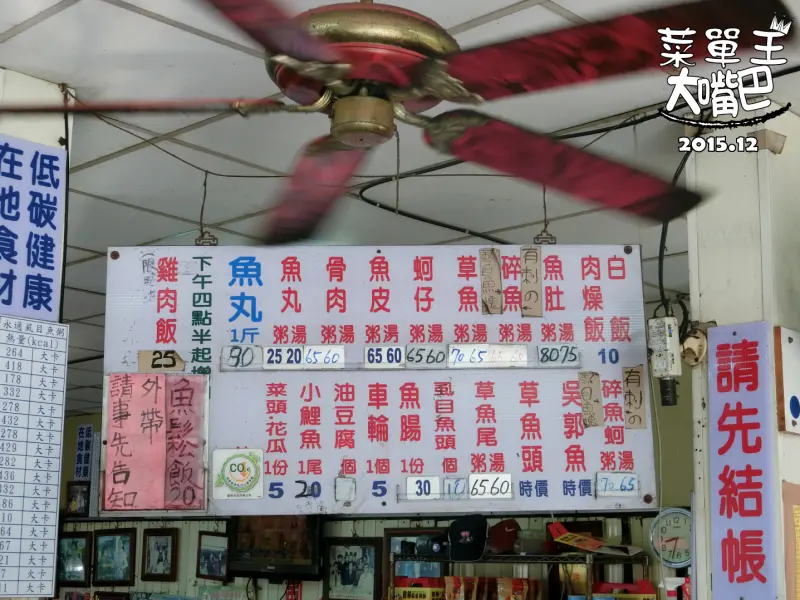 菜單王
大嘴巴
2015.12
低碳健康
在地食材
水邊虱目魚粥
熱量(kcal)
264 大卡
418 大卡
178 大卡
332 大卡
278 大卡
432 大卡
278 大卡
429 大卡
282 大卡
436 大卡
332 大卡
486 大卡
雞肉飯 25
下午四點半起增
魚丸 1斤 90
魚丸 粥湯 25 20
骨肉 粥湯 65 60
魚皮 粥湯 65 60
蚵仔 粥湯 65 60
草魚 粥湯 70 65
碎魚 粥湯
有刺の
魚肚 粥湯 80 75
肉燥飯
白飯
10
外帶
請事先告知
魚鬆飯 20
CO2
菜頭·花瓜 1份 5
小鯉魚 1尾 20
油豆腐 個
車輪 1個 5
魚腸 1份 30
虱目魚頭 個
草魚尾 粥湯 65.60
草魚頭 時價
吳郭魚 時價
碎魚蚵 粥湯 70 65
有刺の
請先結帳